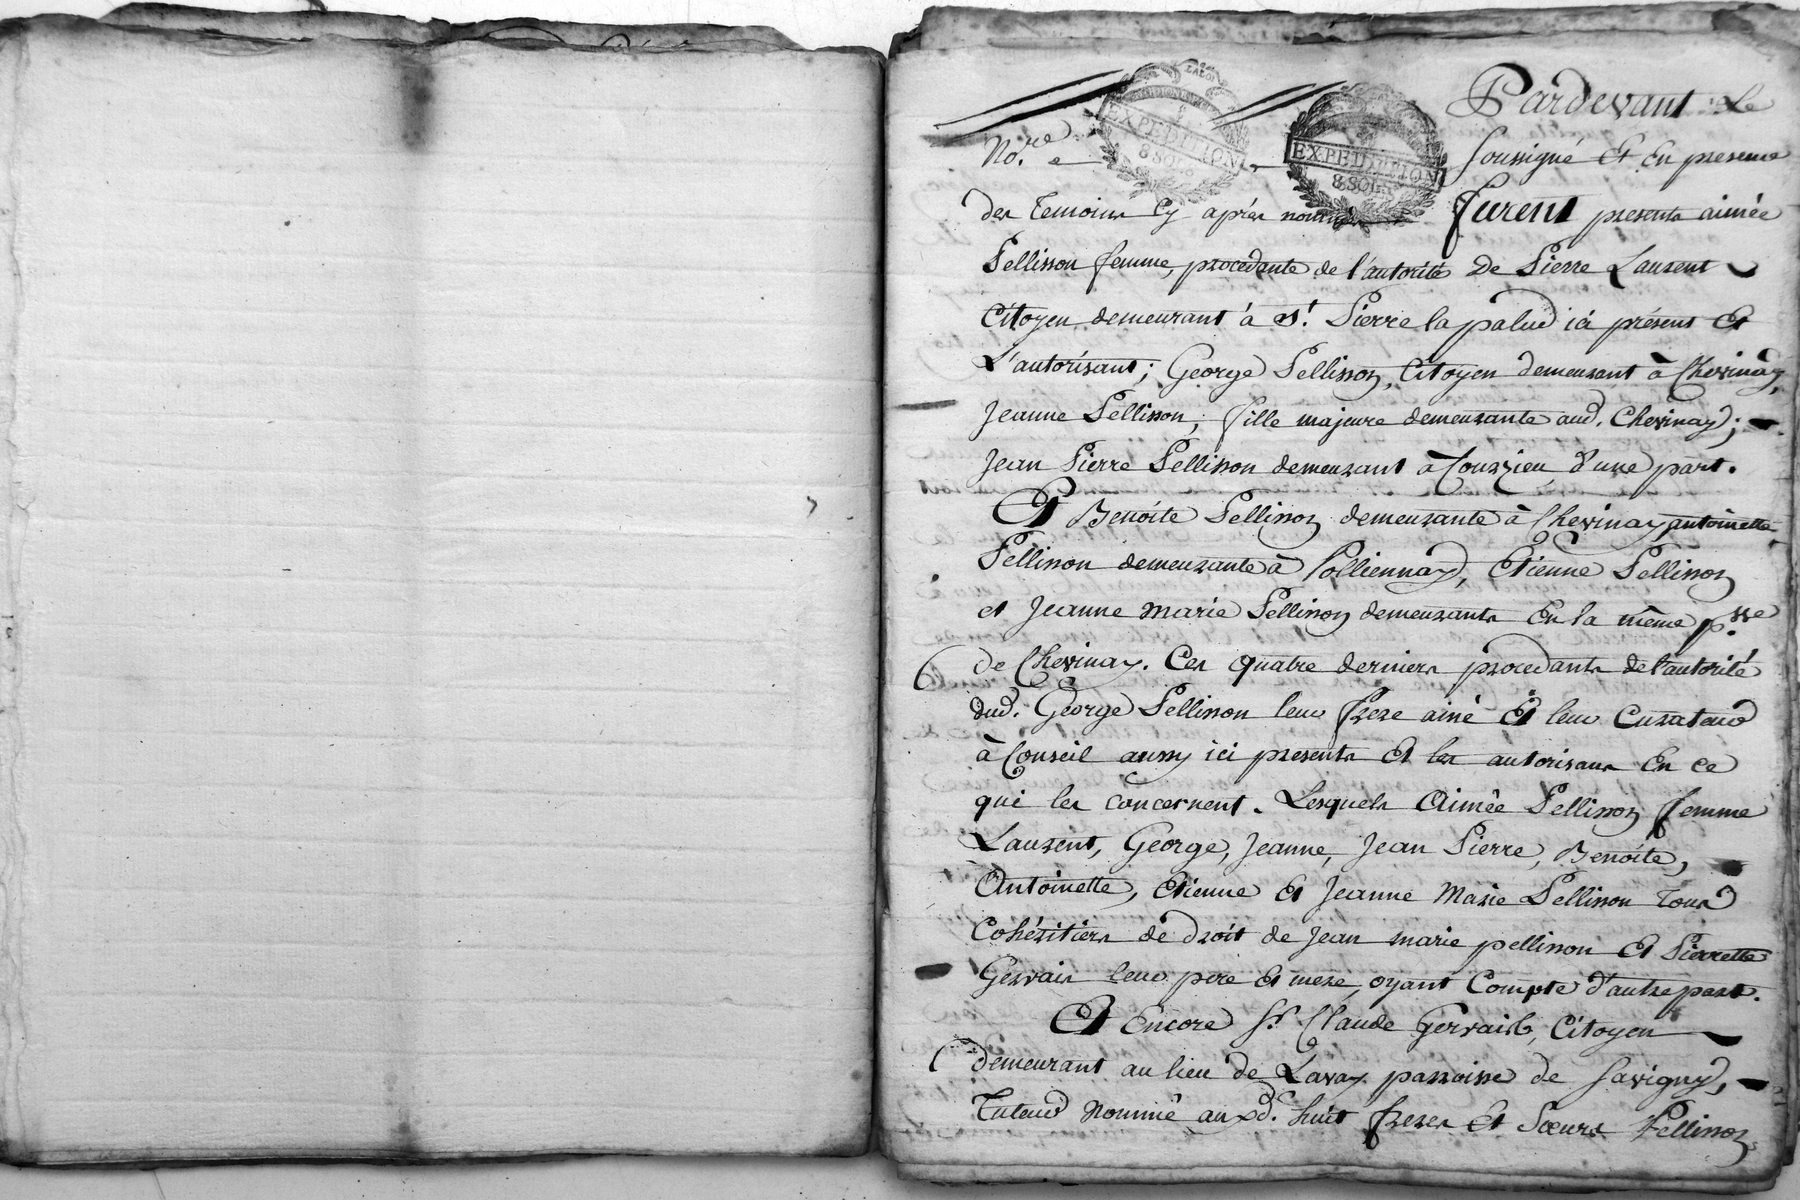 Pardevant Le
LA LOI
EXPEDITION
8 SOLS
EXPEDITION
8 SOLS
No.re soussigné Et En presence
des temoins Cy après nommés furent presents aimée
Pellisson femme, procedante de l'autorité De Pierre Laurent
Citoyen demeurant à St. Pierre la palud ici présent Et
L'autorisant; George Pellisson, Citoyen demeurant à Chevinay,
Jeanne Pellisson, fille majeure demeurante aud. Chevinay;
Jean Pierre Pellisson demeurant à Courzieu d'une part.
Et Benoite Pellisson demeurante à Chevinay, antoinette
Pellisson demeurante à Polliennay, Etienne Pellisson
et Jeanne marie Pellisson demeurants En la même p.sse
de Chevinay. Ces quatre derniers procedants de l'autorité
dud. George Pellisson leur frere ainé Et leur Curateur
à Conseil aussy ici presents Et les autorisant En ce
qui les concernent. Lesquels Aimée Pellisson femme
Laurent, George, Jeanne, Jean Pierre, Benoite,
Antoinette, Etienne Et Jeanne Marie Pellisson tous
Cohéritiers de droit de Jean marie pellisson Et Pierrette
Gervais leur pere Et mere, oyant Compte d'autre part.
Et Encore Sr. Claude Gervais, Citoyen
demeurant au lieu de Lavay parroisse de Savigny,
Tuteur nommé auxd. huit freres Et Sœurs Pellisson